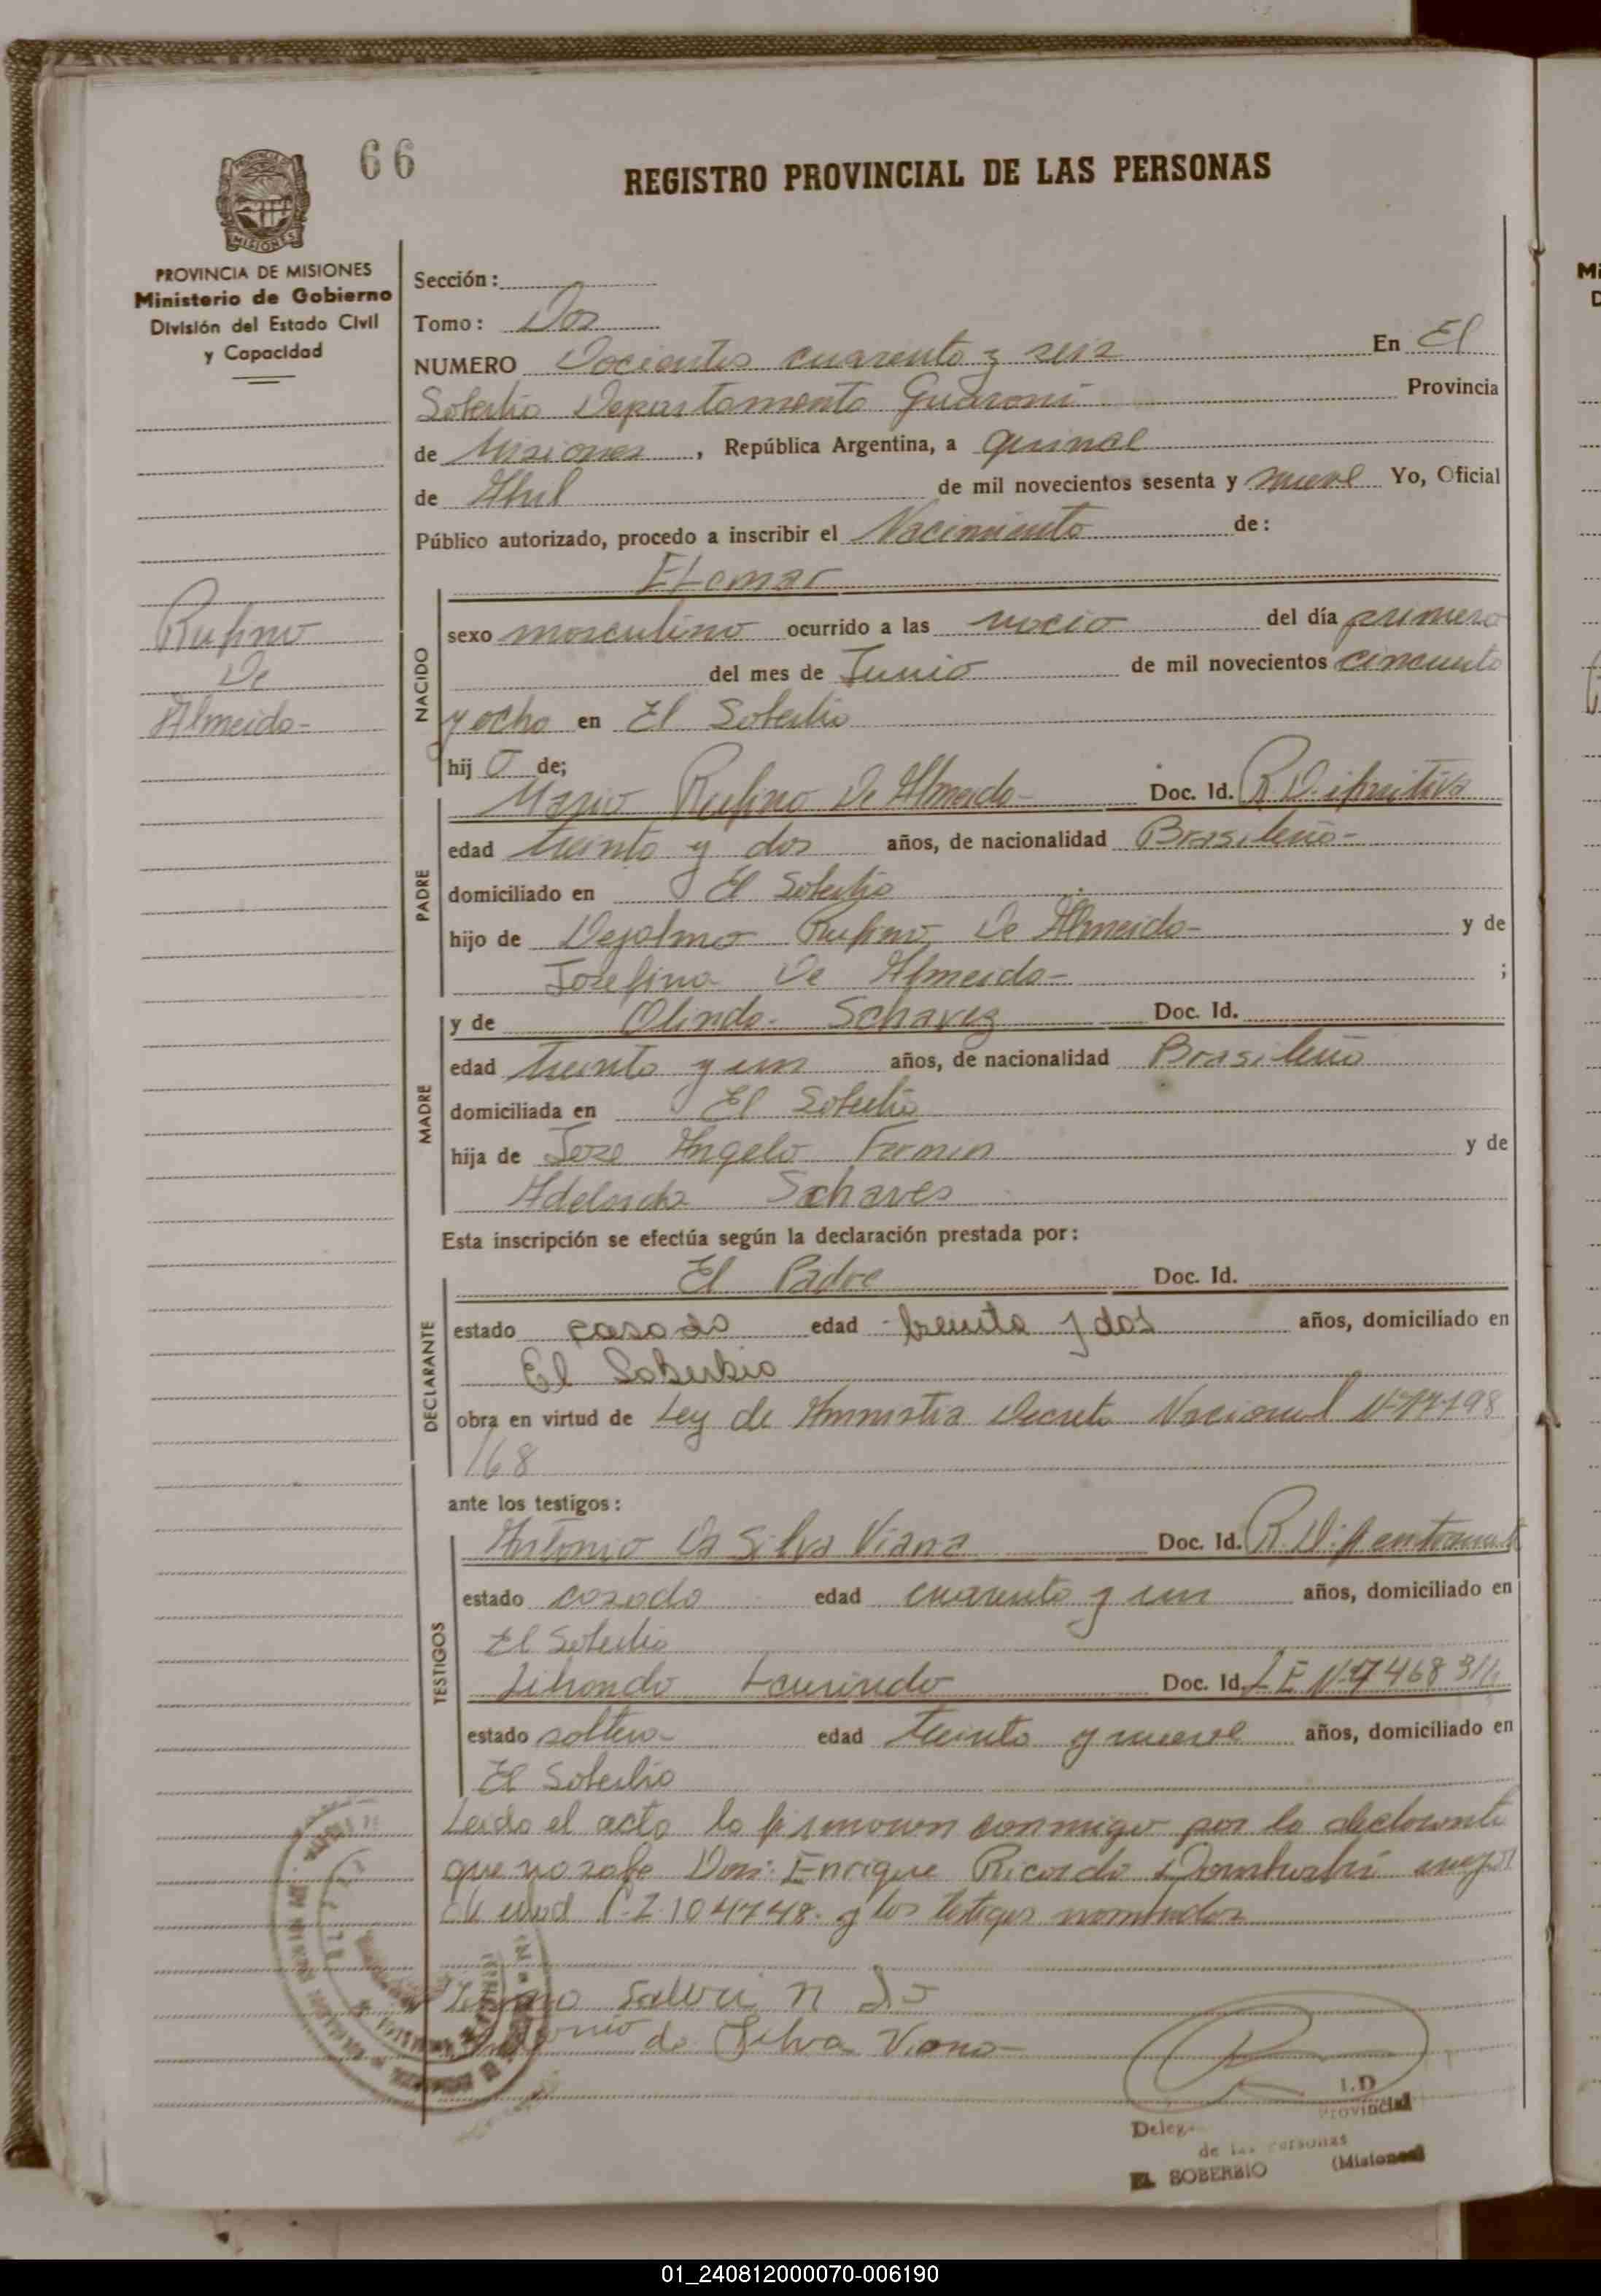 66
REGISTRO PROVINCIAL DE LAS PERSONAS
MISIONES
PROVINCIA DE MISIONES
Ministerio de Gobierno
División del Estado Civil
y Capacidad
Rufino
De
Almeida-
Sección:
Tomo: Dos
NUMERO Docientos cuarenta y seis En El
Soberbio Departamento Guaraní Provincia
de Misiones, República Argentina, a quince
de Abril de mil novecientos sesenta y nueve Yo, Oficial
Público autorizado, procedo a inscribir el Nacimiento de:
NACIDO
sexo masculino ocurrido a las del día primero
del mes de Junio de mil novecientos cincuenta
y ocho en El Soberbio
hijo de;
PADRE
Mario Rufino De Almeida- Doc. Id. R. Difinitiva
edad treinta y dos años, de nacionalidad Brasileño-
domiciliado en El Soberbio
hijo de Dejalmo Rufino De Almeida- y de
Josefina De Almeida- ;
MADRE
y de Olinda Schavez Doc. Id.
edad treinta y un años, de nacionalidad Brasileño
domiciliada en El Soberbio
hija de Jose Angelo Formen y de
Schaves
Esta inscripción se efectúa según la declaración prestada por:
DECLARANTE
El Padre Doc. Id.
estado casado edad treinta y dos años, domiciliado en
El Soberbio
obra en virtud de Ley de Amnistia Decreto Nacional
/68
ante los testigos:
TESTIGOS
Antonio Da Silva Viana Doc. Id. R.
estado casado edad cuarenta y un años, domiciliado en
El Soberbio
Doc. Id. L E Nº 7468
estado soltero- edad treinta y nueve años, domiciliado en
El Soberbio
Leida el acta la firmaron conmigo por la declarante
que no sabe Don: Enrique Ricardo mayor
de edad C.I. 104748. y los testigos nombrados
de Silva Viana-
I.D
Provincial
de las Personas
EL SOBERBIO (Misiones)
01_240812000070-006190